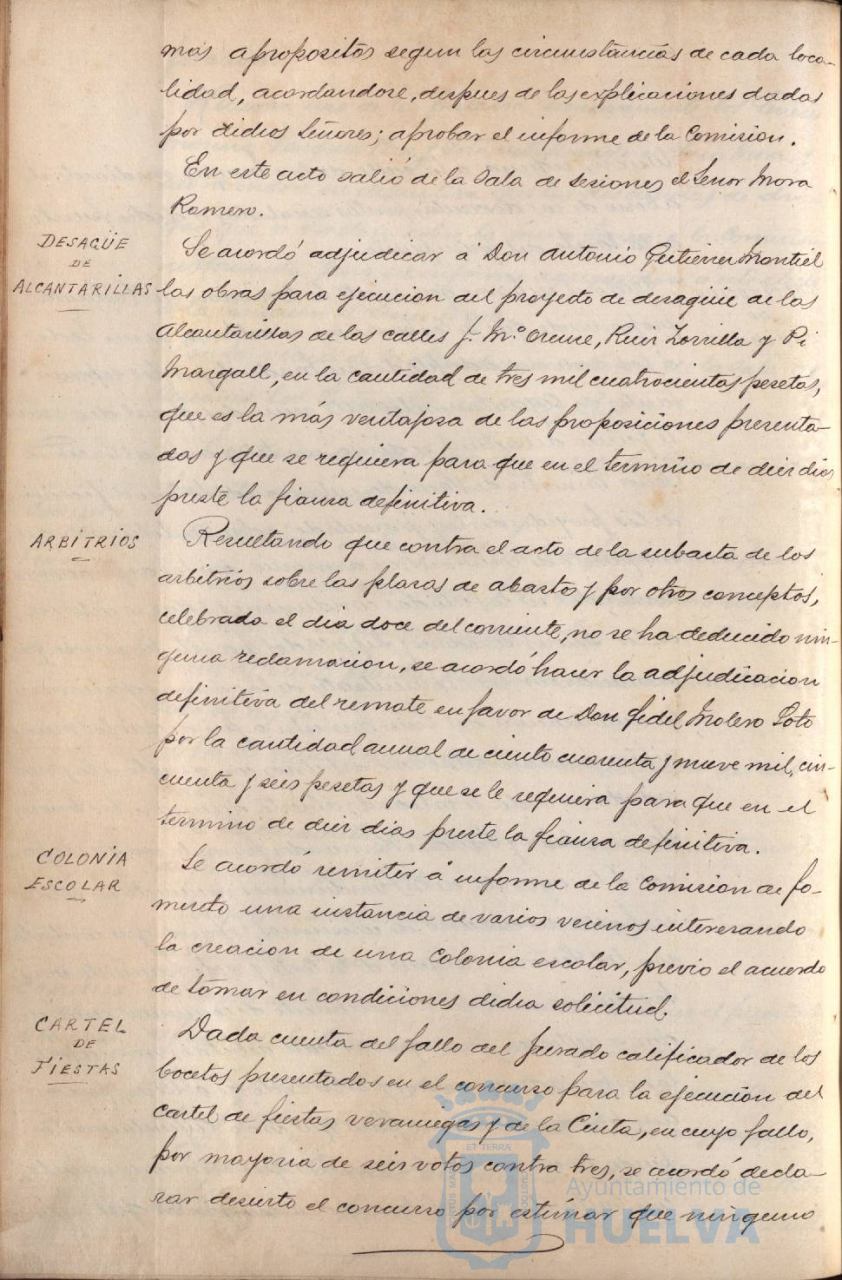 mas apropositos segun las circunstancias de cada loca-
lidad, acordandose, despues de las explicaciones dadas
por dichos Señores; aprobar el informe de la Comision.
En este acto salió de la Sala de Sesiones el Señor Mora
Romero.
DESAGÜE
DE
ALCANTARILLAS
Se acordó adjudicar á Don Antonio Gutierrez Montiel
las obras para ejecucion del proyecto de desagüe de las
Alcantarillas de las calles J. Mª Orense, Ruiz Zorrilla y Pi
Margall, en la cantidad de tres mil cuatrocientas pesetas,
que es la más ventajosa de las proposiciones presenta-
das y que se requiera para que en el termino de diez dias
preste la fianza definitiva.
ARBITRIOS
Resultando que contra el acto de la subasta de los
arbitrios sobre las plazas de abastos y por otros conceptos,
celebrada el dia doce del corriente, no se ha deducido nin-
guna reclamacion, se acordó hacer la adjudicacion
definitiva del remate en favor de Don Fidel Molero Soto
por la cantidad anual de ciento cuarenta y nueve mil, cin-
cuenta y seis pesetas y que se le requiera para que en el
termino de diez dias preste la fianza definitiva.
COLONIA
ESCOLAR
Se acordó remitir á informe de la Comision de Fo-
mento una instancia de varios vecinos interesando
la creacion de una Colonia escolar, previo el acuerdo
de tomar en condiciones dicha solicitud.
CARTEL
DE
FIESTAS
Dada cuenta del fallo del Jurado calificador de los
bocetos presentados en el concurso para la ejecución del
Cartel de fiestas veraniegas y de la Cinta, en cuyo fallo,
por mayoria de seis votos contra tres, se acordó decla-
rar desierto el concurso por estimar que ninguno
ET TERRA
Ayuntamiento de
HUELVA